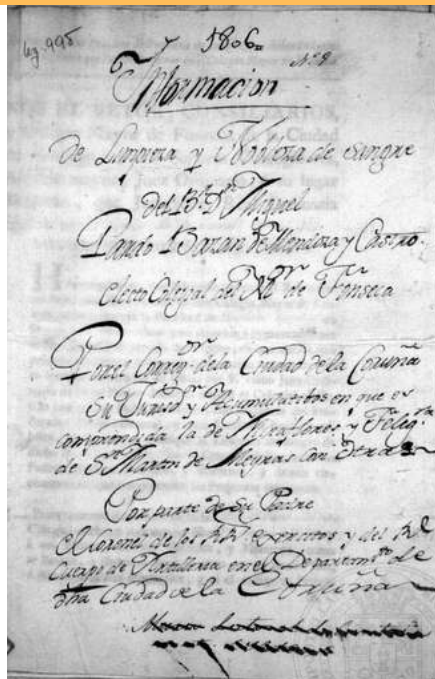 leg. 995
1806
Nº 9
Informacion
De Limpieza y Nobleza de sangre
del Bʳ Dⁿ Miguel
Pardo Bazan de Mendoza y Castro.
electo Colegial del Mʳ de Fonseca
Por el Corregᵒʳ de la Ciudad de la Coruña
Su Jurisdⁿ y Acumulatos en que es
comprendida la de Miraflores y Feligª
de Sⁿ Martin de Meyras con otras
Por parte de su Padre
el Coronel de los Rˢ Exercitos y del Rˡ
Cuerpo de Artilleria en el Departamᵗᵒ de
dha Ciudad de la Coruña